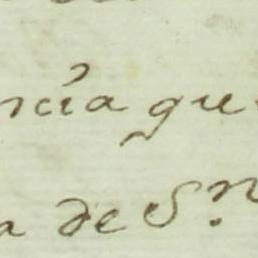 ncía que
a de S.n